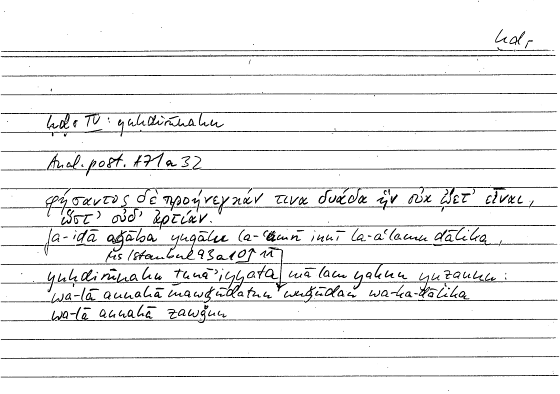 ḥḍr
ḥḍr IV: yuḥḍirūnahu
Anal. post. A71a32
φήσαντος δὲ προήνεγκάν τινα δυάδα ἣν οὐκ ᾤετ' εἶναι,
ὥστ' οὐδ' ἀρτίαν.
fa-iḏā aǧāba yuqālu la-'amrī innī la-a'lamu ḏālika,
Ms Istanbul 93a10
yuḥḍirūnahu ṯunā'iyyata mā lam yakun yuẓannu:
wa-lā annahā mawǧūdatun wuǧūdan wa-ka-ḏālika
wa-lā annahā zawǧun